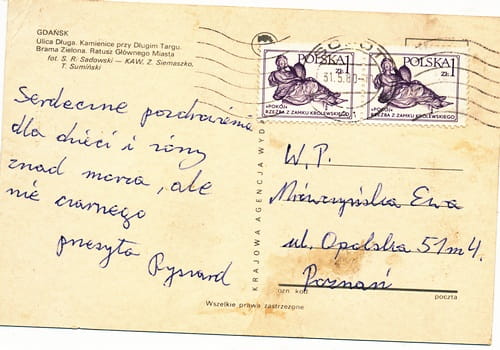 GDAŃSK
Ulica Długa. Kamienice przy Długim Targu.
Brama Zielona. Ratusz Głównego Miasta
fot. S. R. Sadowski — KAW, Z. Siemaszko,
T. Sumiński
SOPOT
31.5.80
POLSKA 1 ZŁ
»POKÓJ«
RZEŹBA Z ZAMKU KRÓLEWSKIEGO
POLSKA 1 ZŁ
»POKÓJ«
RZEŹBA Z ZAMKU KRÓLEWSKIEGO
Serdeczne pozdrowienia
dla dzieci i żony
znad morza, ale
nie czarnego
przesyła Ryszard
KRAJOWA AGENCJA WYD
W.P.
Ewa
ul. Opolska 51 m 4.
Poznań
ozn kod
poczta
Wszelkie prawa zastrzeżone